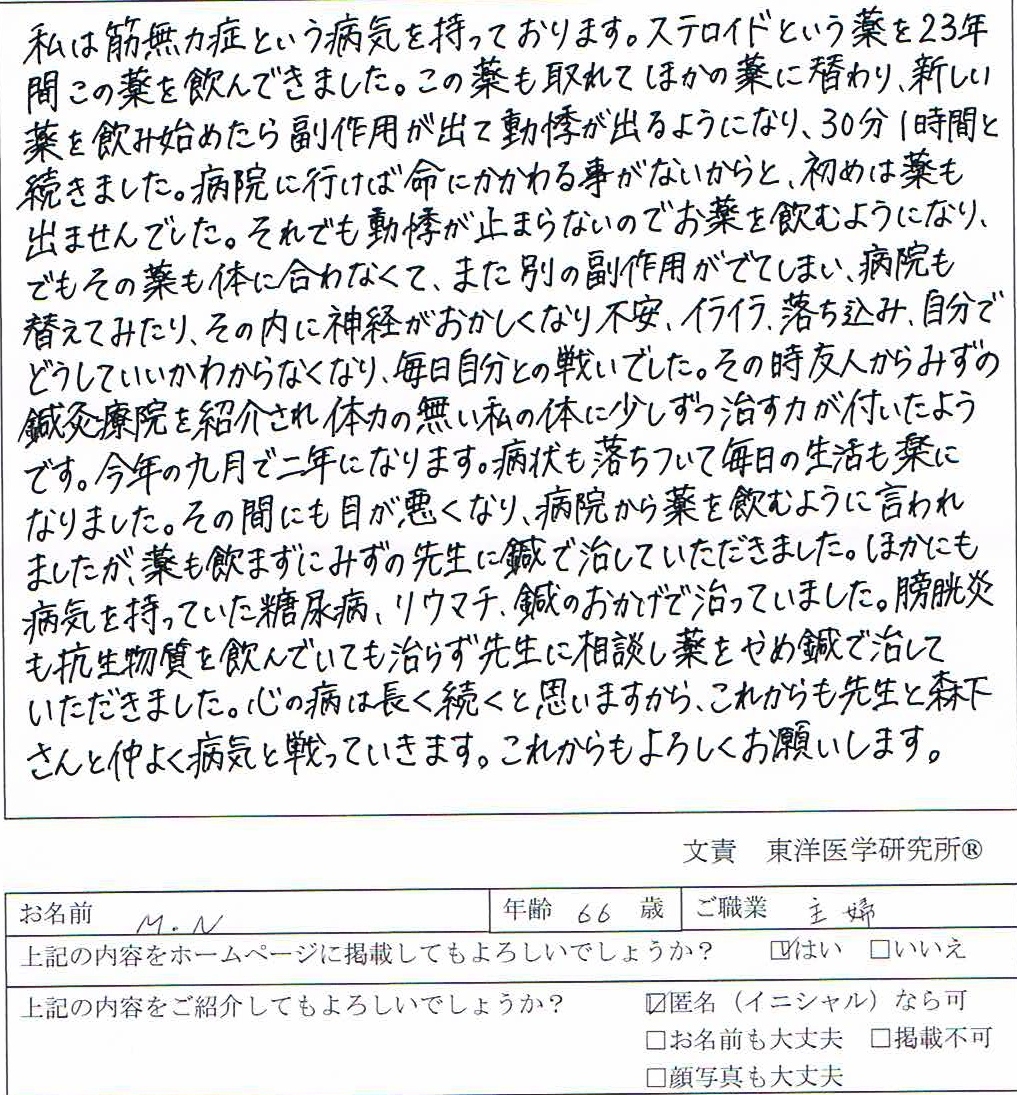 私は筋無力症という病気を持っております。ステロイドという薬を23年
間この薬を飲んできました。この薬も取れてほかの薬に替わり、新しい
薬を飲み始めたら副作用が出て動悸が出るようになり、30分1時間と
続きました。病院に行けば命にかかわる事がないからと、初めは薬も
出ませんでした。それでも動悸が止まらないのでお薬を飲むようになり、
でもその薬も体に合わなくて、また別の副作用がでてしまい、病院も
替えてみたり、その内に神経がおかしくなり不安、イライラ、落ち込み、自分で
どうしていいかわからなくなり、毎日自分との戦いでした。その時友人からみずの
鍼灸療院を紹介され体力の無い私の体に少しずつ治す力が付いたよう
です。今年の九月で二年になります。病状も落ちついて毎日の生活も楽に
なりました。その間にも目が悪くなり、病院から薬を飲むように言われ
ましたが、薬も飲まずにみずの先生に鍼で治していただきました。ほかにも
病気を持っていた糖尿病、リウマチ、鍼のおかげで治っていました。膀胱炎
も抗生物質を飲んでいても治らず先生に相談し薬をやめ鍼で治して
いただきました。心の病は長く続くと思いますから、これからも先生と森下
さんと仲よく病気と戦っていきます。これからもよろしくお願いします。
文責 東洋医学研究所®
お名前 M.N 年齢 66 歳 ご職業 主婦
上記の内容をホームページに掲載してもよろしいでしょうか? ☑はい □いいえ
上記の内容をご紹介してもよろしいでしょうか? ☑匿名（イニシャル）なら可
□お名前も大丈夫 □掲載不可
□顔写真も大丈夫